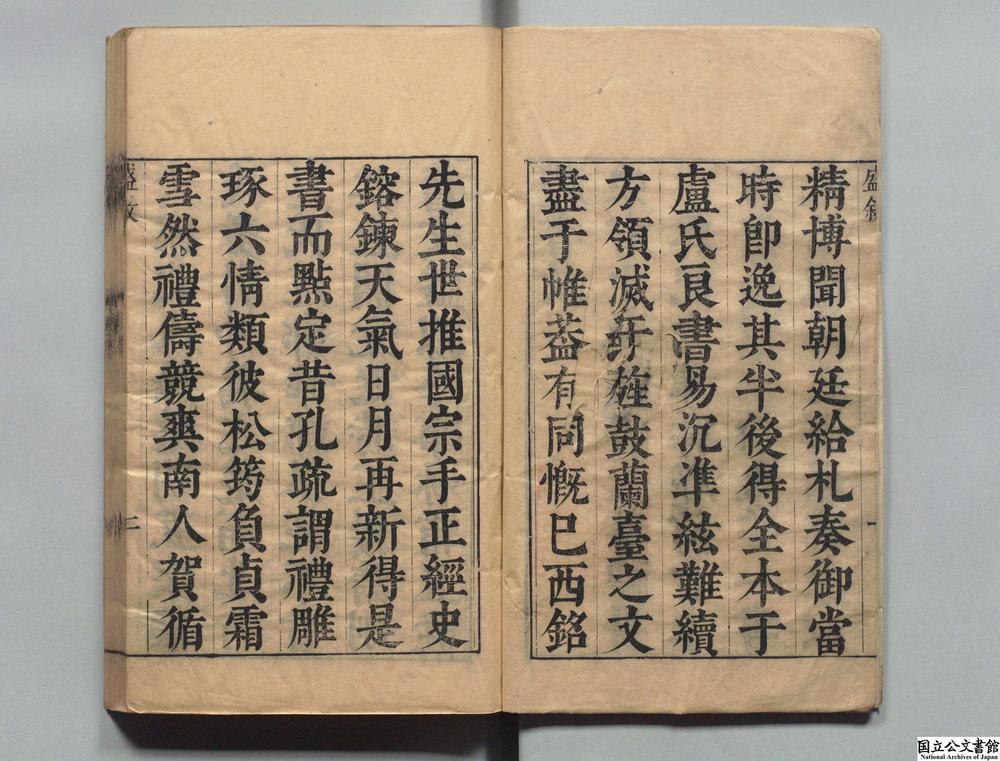 精博聞朝廷給札奏御當
時卽逸其半後得全本于
盧氏良書易沉凖絃難續
方領滅
鼓蘭臺之文
盡于帷葢有同慨巳西銘
先生世推國宗手正經史
鎔鍊天氣日月再新得是
書而點定昔孔疏謂禮雕
琢六情類彼松筠負貞霜
雪然禮儔競爽南人賀循
二
一
国立公文書館
National Archives of Japan